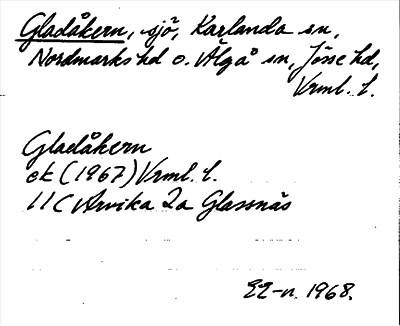 Gladåkern, sjö, Karlanda sn,
Nordmarks hd o. Älgå sn, Jösse hd,
Vrml. l.
Gladåkern
ek (1967) Vrml. l.
11C Arvika 2a Glassnäs
EE-n. 1968.